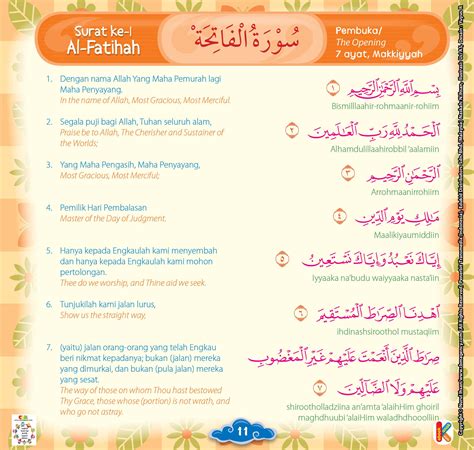 Surat ke-1
Al-Fatihah
سُوْرَةُ الْفَاتِحَةِ
Pembuka/
The Opening
7 ayat, Makkiyyah
1. Dengan nama Allah Yang Maha Pemurah lagi
Maha Penyayang.
In the name of Allah, Most Gracious, Most Merciful.
بِسْمِ اللهِ الرَّحْمٰنِ الرَّحِيْمِ ١
Bismillaahir-rohmaanir-rohiim
2. Segala puji bagi Allah, Tuhan seluruh alam,
Praise be to Allah, The Cherisher and Sustainer of
the Worlds;
الْحَمْدُ لِلّٰهِ رَبِّ الْعَالَمِيْنَ ٢
Alhamdulillaahirobbil 'aalamiin
3. Yang Maha Pengasih, Maha Penyayang,
Most Gracious, Most Merciful;
الرَّحْمٰنِ الرَّحِيْمِ ٣
Arrohmaanirrohiim
4. Pemilik Hari Pembalasan
Master of the Day of Judgment.
مٰلِكِ يَوْمِ الدِّيْنِ ٤
Maalikiyaumiddiin
5. Hanya kepada Engkaulah kami menyembah
dan hanya kepada Engkaulah kami mohon
pertolongan.
Thee do we worship, and Thine aid we seek.
اِيَّاكَ نَعْبُدُ وَاِيَّاكَ نَسْتَعِيْنُ ٥
Iyyaaka na'budu waiyyaaka nasta'iin
6. Tunjukilah kami jalan lurus,
Show us the straight way,
اِهْدِنَا الصِّرَاطَ الْمُسْتَقِيْمَ ٦
ihdinashsiroothol mustaqiim
7. (yaitu) jalan orang-orang yang telah Engkau
beri nikmat kepadanya; bukan (jalan) mereka
yang dimurkai, dan bukan (pula jalan) mereka
yang sesat.
The way of those on whom Thou hast bestowed
Thy Grace, those whose (portion) is not wrath, and
who go not astray.
صِرَاطَ الَّذِيْنَ اَنْعَمْتَ عَلَيْهِمْ غَيْرِ الْمَغْضُوْبِ
عَلَيْهِمْ وَلَا الضَّالِّيْنَ ٧
shirootholladziina an'amta 'alaihiim ghoiril
maghdhuubi 'alaiHim waladhdhooolliin
11